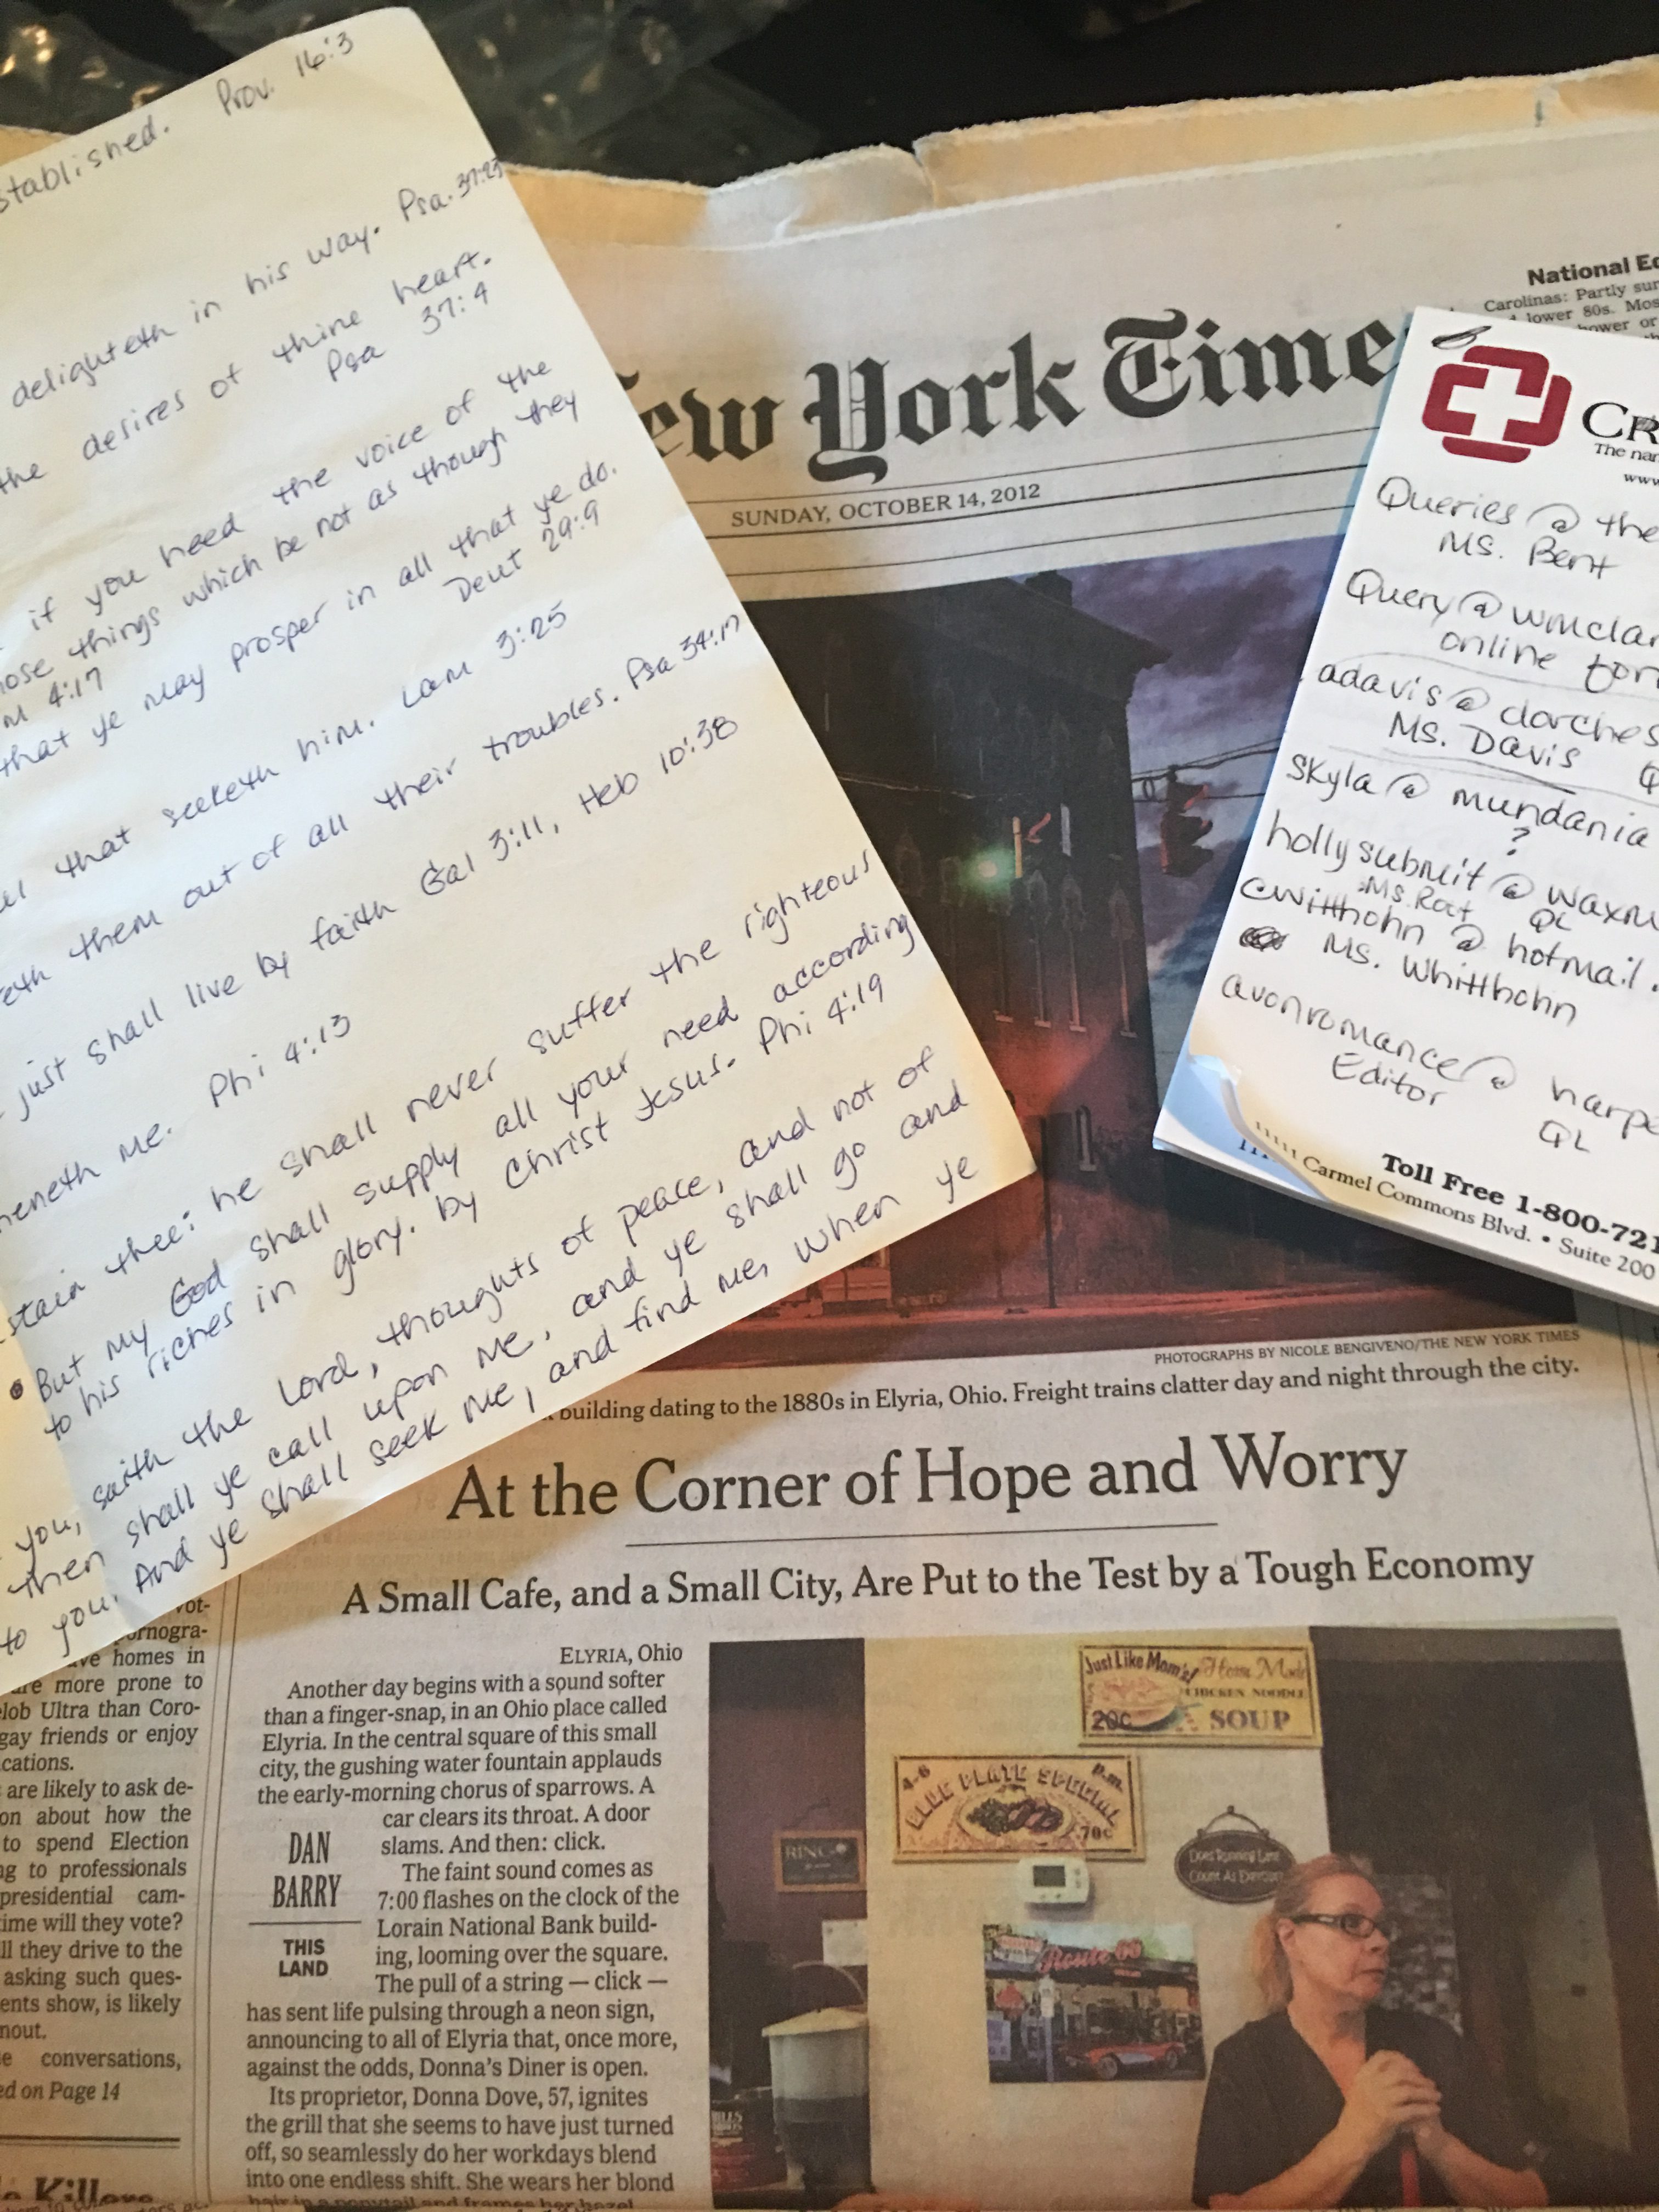 stablished. Prov. 16:3
delighteth in his way. Psa. 37:23
the desires of thine heart.
Psa 37:4
if you heed the voice of the
those things which be not as though they
M 4:17
that ye may prosper in all that ye do.
Deut 29:9
that seeketh him. Lam 3:25
eth them out of all their troubles. Psa 34:17
just shall live by faith Gal 3:11, Heb 10:38
heneth me. Phi 4:13
stain thee: he shall never suffer the righteous
• But my God shall supply all your need according
to his riches in glory. by Christ Jesus. Phi 4:19
you, saith the Lord, thoughts of peace, and not of
then shall ye call upon me, and ye shall go and
to you. And ye shall seek me, and find me, when ye
ew York Time
SUNDAY, OCTOBER 14, 2012
National Ed
Carolinas: Partly sun
lower 80s. Mos
hower or
CR
The nam
www
Queries @ the
Ms. Bent
Query @ wmclar
online for
adavis @ dorches
Ms. Davis Q
Skyla @ mundania
?
holly submit @ waxm
Ms. Root QL
cwitthohn @ hotmail.
Ms. Whitthohn
avonromance @ harpe
Editor
QL
Toll Free 1-800-721
11111 Carmel Commons Blvd. • Suite 200
PHOTOGRAPHS BY NICOLE BENGIVENO/THE NEW YORK TIMES
building dating to the 1880s in Elyria, Ohio. Freight trains clatter day and night through the city.
At the Corner of Hope and Worry
A Small Cafe, and a Small City, Are Put to the Test by a Tough Economy
vot-
ornogra-
ave homes in
are more prone to
elob Ultra than Coro-
gay friends or enjoy
cations.
are likely to ask de-
on about how the
to spend Election
ng to professionals
presidential cam-
time will they vote?
ll they drive to the
asking such ques-
ents show, is likely
nout.
e conversations,
ed on Page 14
Killers
ELYRIA, Ohio
Another day begins with a sound softer
than a finger-snap, in an Ohio place called
Elyria. In the central square of this small
city, the gushing water fountain applauds
the early-morning chorus of sparrows. A
car clears its throat. A door
slams. And then: click.
The faint sound comes as
7:00 flashes on the clock of the
Lorain National Bank build-
ing, looming over the square.
The pull of a string — click —
has sent life pulsing through a neon sign,
announcing to all of Elyria that, once more,
against the odds, Donna's Diner is open.
Its proprietor, Donna Dove, 57, ignites
the grill that she seems to have just turned
off, so seamlessly do her workdays blend
into one endless shift. She wears her blond
hair in a ponytail and frames her hazel
DAN
BARRY
THIS
LAND
Just Like Mom's! Home Made
CHICKEN NOODLE
20c SOUP
4-6 p.m.
BLUE PLATE SPECIAL
70c
Does Running Late
Count As Exercise
Route 66